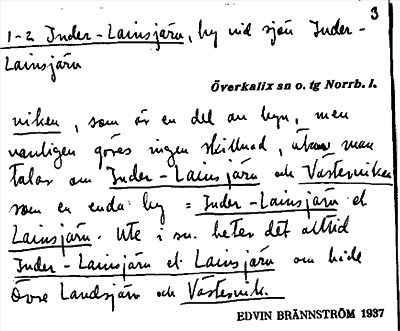 3
1-2 Inder-Lainsjärn, by vid sjön Inder-
Lainsjärn
Överkalix sn o. tg Norrb. l.
viken, som är en del av byn, men
vanligen göres ingen skillnad, utan man
talar om Inder-Lainsjärn och Västerviken
som en enda by = Inder-Lainsjärn el.
Lainsjärn. Ute i sn. heter det alltid
Inder-Lainsjärn el. Lainsjärn om både
Övre Landsjärn och Västervik.
EDVIN BRÄNNSTRÖM 1937